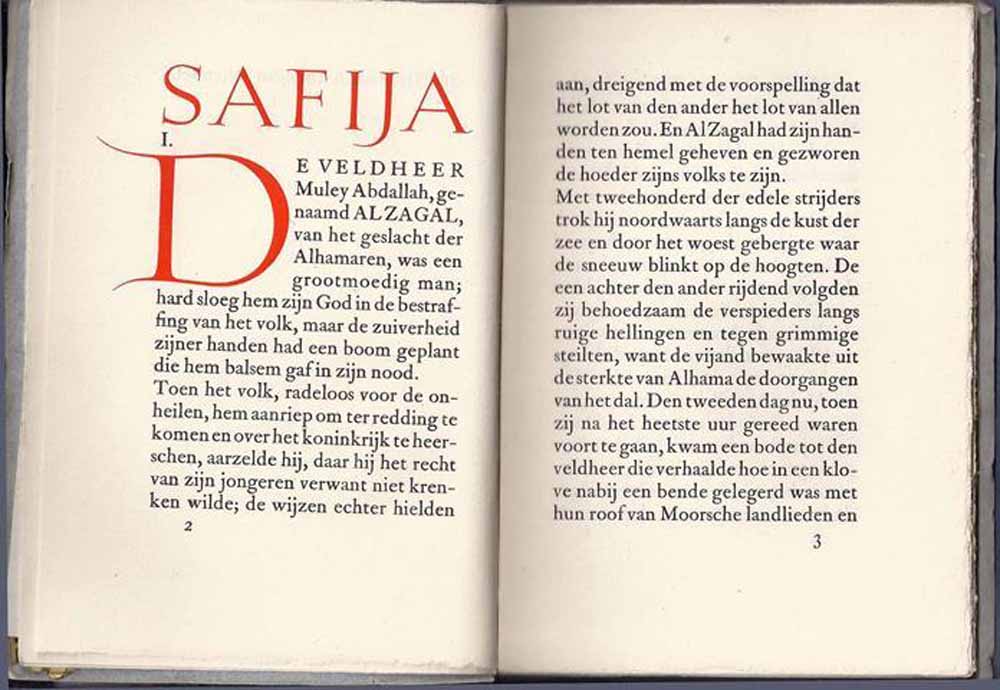 SAFIJA
I.
DE VELDHEER
Muley Abdallah, ge-
naamd AL ZAGAL,
van het geslacht der
Alhamaren, was een
grootmoedig man;
hard sloeg hem zijn God in de bestraf-
fing van het volk, maar de zuiverheid
zijner handen had een boom geplant
die hem balsem gaf in zijn nood.
Toen het volk, radeloos voor de on-
heilen, hem aanriep om ter redding te
komen en over het koninkrijk te heer-
schen, aarzelde hij, daar hij het recht
van zijn jongeren verwant niet kren-
ken wilde; de wijzen echter hielden
2
aan, dreigend met de voorspelling dat
het lot van den ander het lot van allen
worden zou. En Al Zagal had zijn han-
den ten hemel geheven en gezworen
de hoeder zijns volks te zijn.
Met tweehonderd der edele strijders
trok hij noordwaarts langs de kust der
zee en door het woest gebergte waar
de sneeuw blinkt op de hoogten. De
een achter den ander rijdend volgden
zij behoedzaam de verspieders langs
ruige hellingen en tegen grimmige
steilten, want de vijand bewaakte uit
de sterkte van Alhama de doorgangen
van het dal. Den tweeden dag nu, toen
zij na het heetste uur gereed waren
voort te gaan, kwam een bode tot den
veldheer die verhaalde hoe in een klo-
ve nabij een bende gelegerd was met
hun roof van Moorsche landlieden en
3